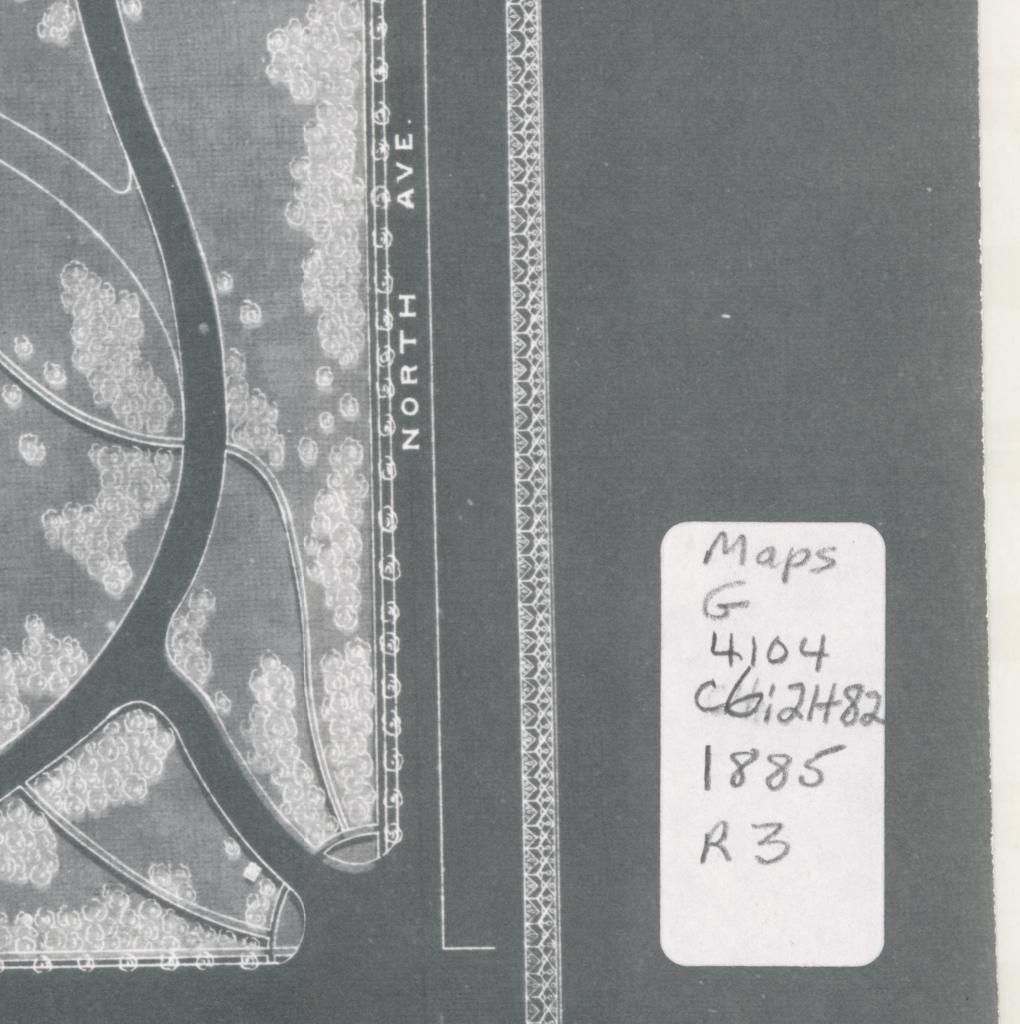 NORTH AVE.
Maps
G
4104
C6:2H82
1885
R3